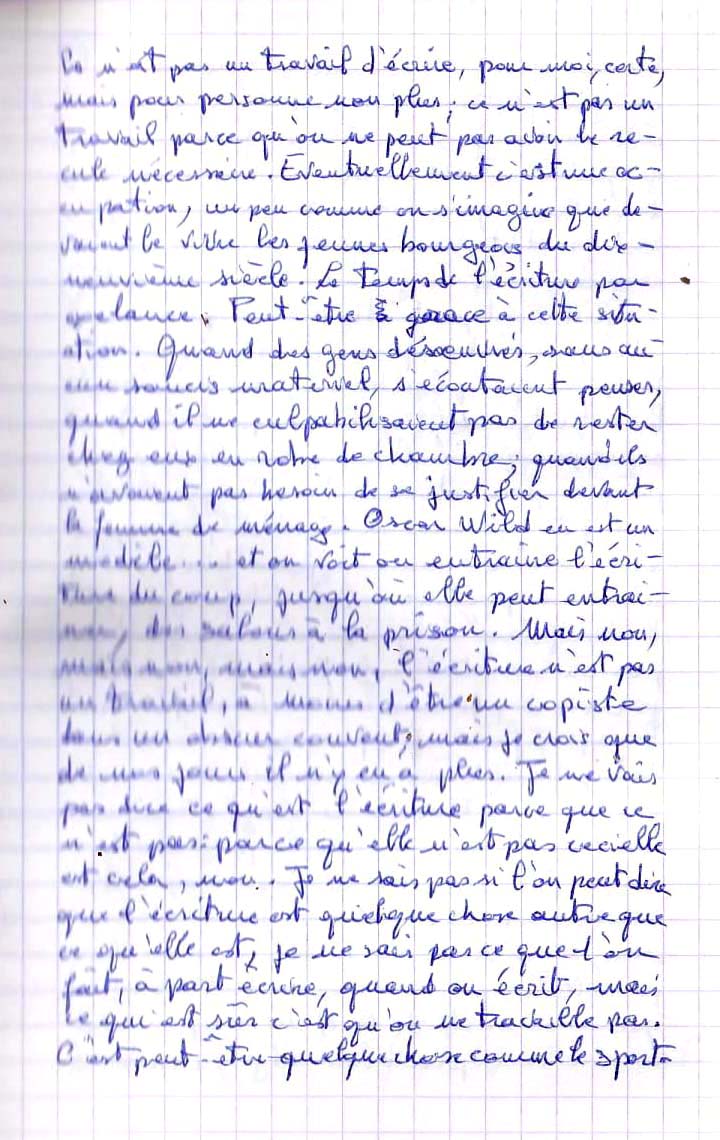 Ce n'est pas un travail d'écrire, pour moi, certe,
mais pour personne non plus ; ce n'est pas un
travail parce qu'on ne peut pas avoir le re-
cule nécessaire. Eventuellement c'est une oc-
cupation, un peu comme on s'imagine que de-
vaient le vivre les jeunes bourgeois du dix-
neuvième siècle. Le temps de l'écriture par
exelance. Peut-être grace à cette situ-
ation. Quand des gens désoeuvrés, sans au-
cun soucis materiel, s'écoutaient penser,
quand il ne culpabilisaient pas de rester
chez eux en robe de chambre ; quand ils
n'avaient pas besoin de se justifier devant
la femme de ménage. Oscar Wild en est un
modèle... et on voit ou entraine l'écri-
ture du coup, jusqu'où elle peut entrai-
ner, des salons à la prison. Mais non,
mais non, mais non, l'écriture n'est pas
un travail, à moins d'être un copiste
dans un obscur couvent, mais je crois que
de nos jours il n'y en a plus. Je ne vais
pas dire ce qu'est l'écriture parce que ce
n'est pas : parce qu'elle n'est pas ceci elle
est cela, non. Je ne sais pas si l'on peut dire
que l'écriture est quelque chose autre que
ce qu'elle est, je ne sais pas ce que l'on
fait, à part écrire, quand on écrit, mais
ce qui est sûr c'est qu'on ne travaille pas.
C'est peut-être quelque chose comme le sport-